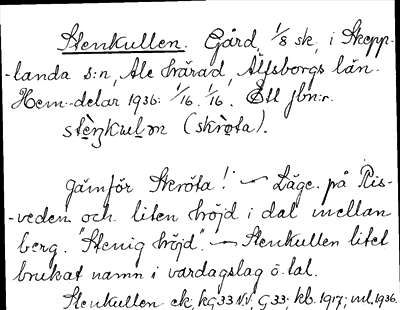 Stenkullen. Gård, 1/8 sk, i Skepp-
-landa s:n, Ale härad, Älfsborgs län.
Hem.-delar 1936: 1/16. 1/16. Ett jbn:r.
(skròta).
Jämför Skröta! — Läge. på Ris-
-veden och liten höjd i dal mellan
berg. "Stenig höjd". — Stenkullen litet
brukat namn i vardagslag o. tal.
Stenkullen ek, kG33NV, G 33; kb. 1917; ml. 1936.